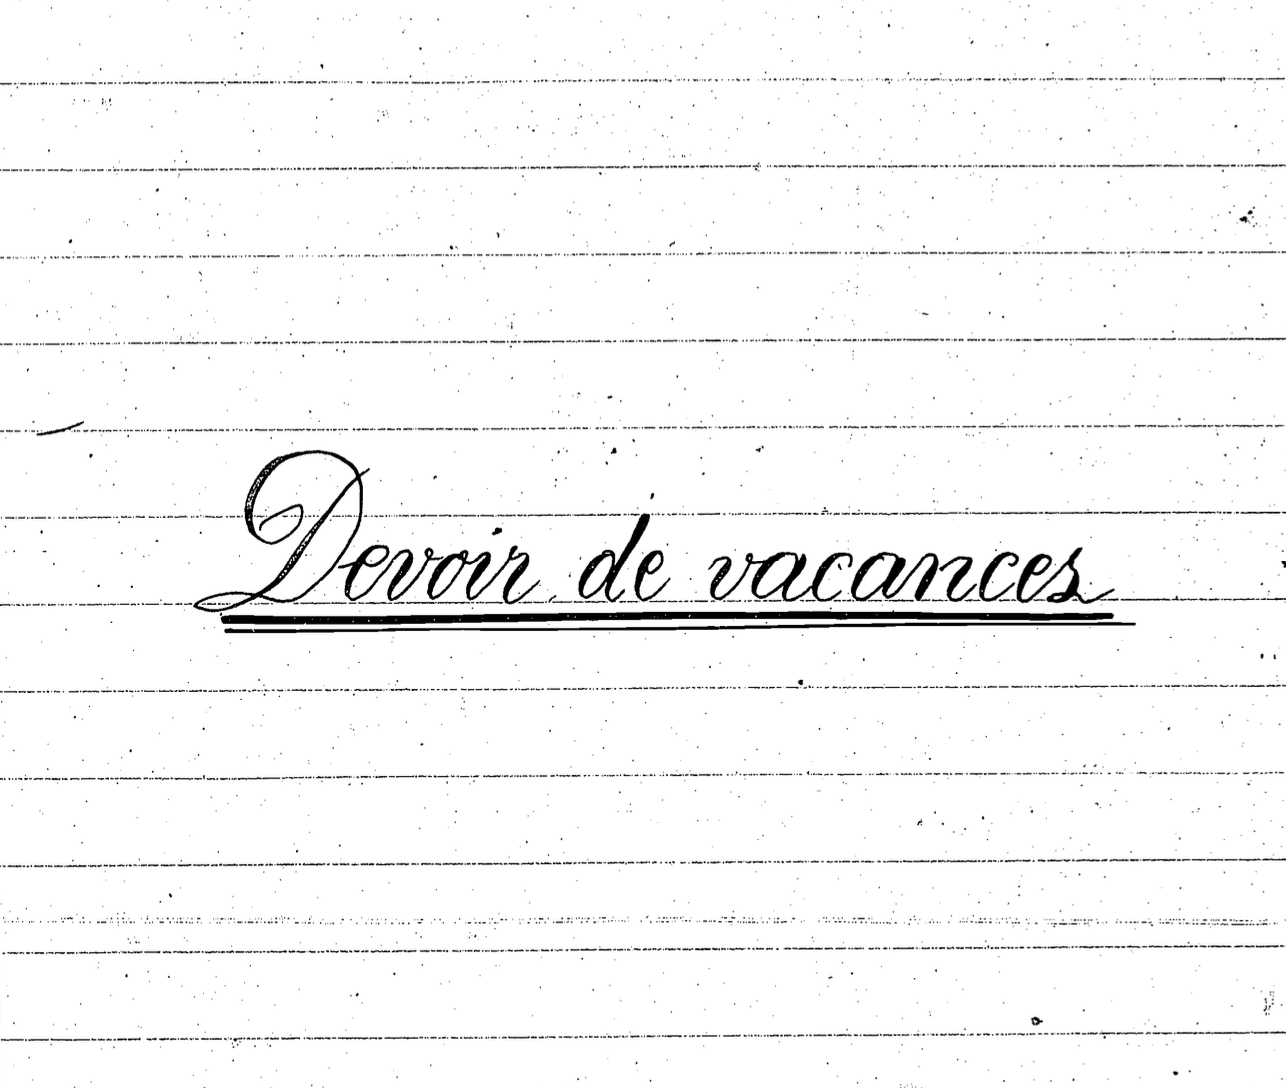 Devoir de vacances